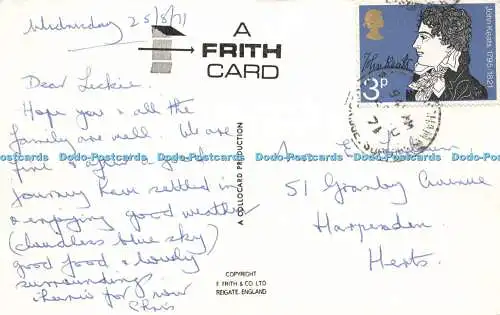 Wednesday 25/8/71
Dear Leckie,
Hope you & all the
family are well. We are
fine & after a good
journey have settled in
& enjoying good weather
(cloudless blue sky)
good food & lovely
surroundings.
for now
Chris
A
FRITH
CARD
A COLLOCARD PRODUCTION
COPYRIGHT
F. FRITH & CO. LTD.
REIGATE, ENGLAND
John Keats 1795-1821
John Keats
3p
51 Granby Avenue
Harpenden
Herts.
Dodo-Postcards Dodo-Postcards Dodo-Postcards Dodo-Postcards